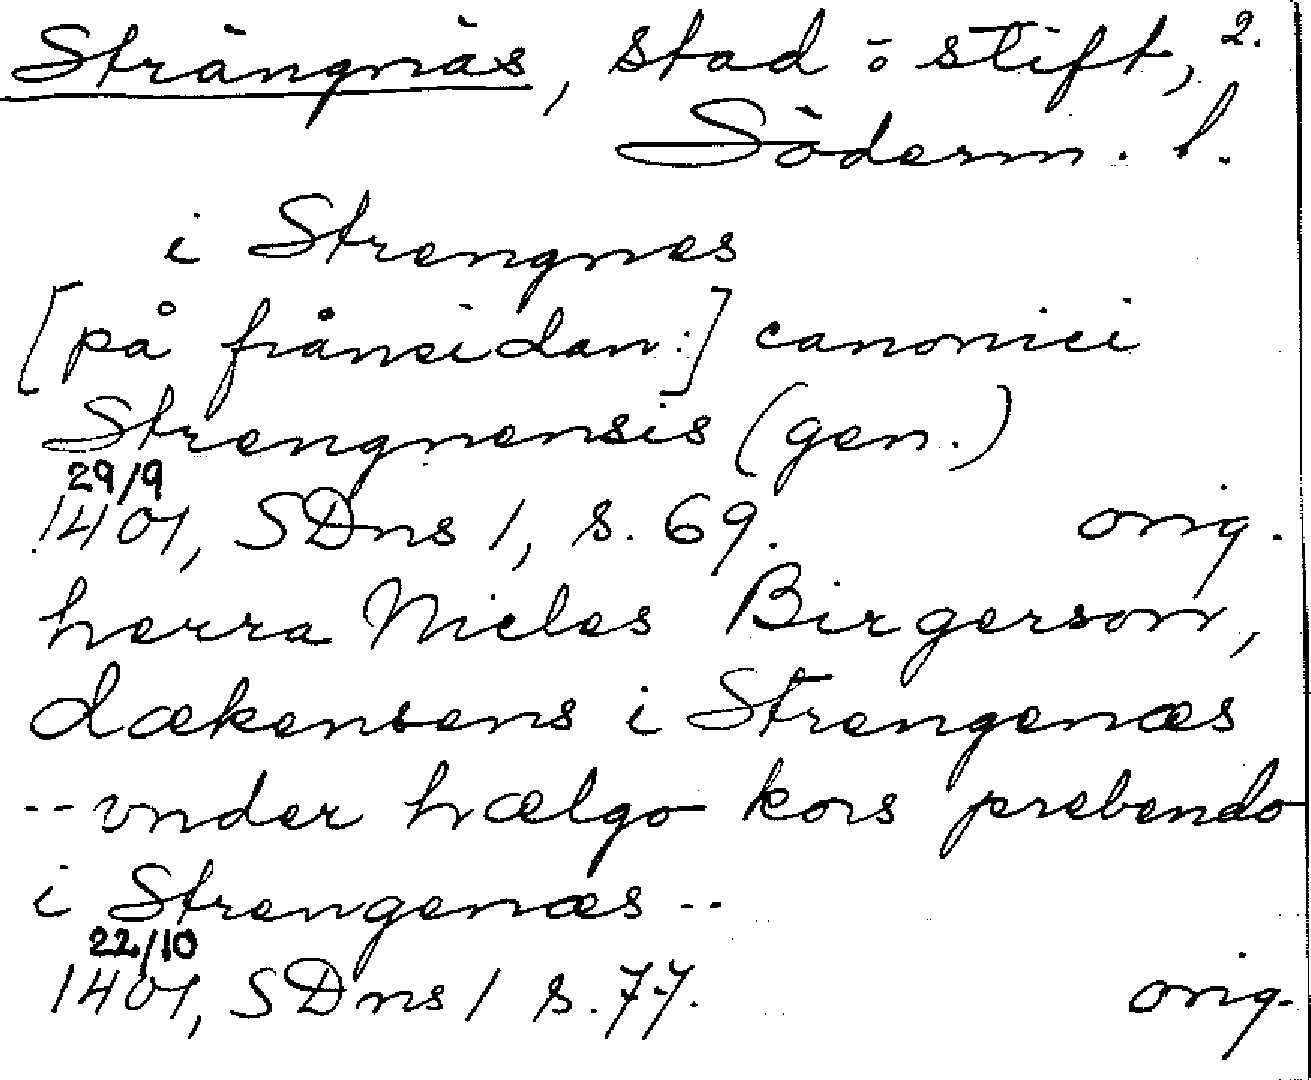 Strängnäs, stad o stift, 2.
Söderm. l.
i Strengnes
[på frånsidan:] canonici
Strengnensis (gen.)
29/9
1401, SDns 1, s. 69. orig.
herra Nicles Birgerson,
dækensens i Strengenæs
-- vnder hælgo kors prebendo
i Strengenæs --
22/10
1401, SDns 1 s. 77. orig.